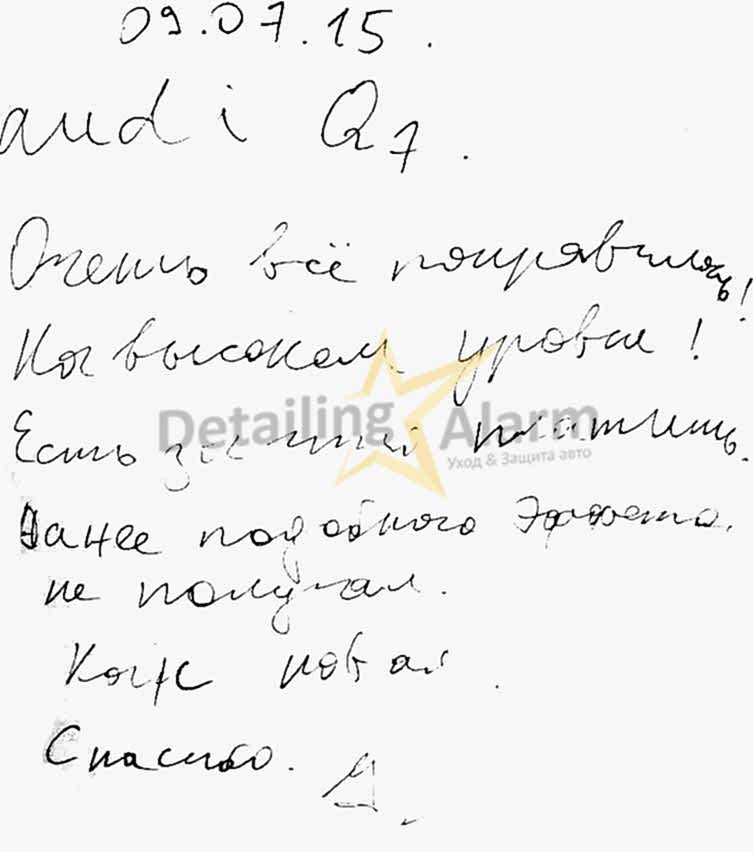 09.07.15.
audi Q7.
Очень всё понравилось!
На высоком уровне!
Есть за что платить.
Detailing Alarm
Уход & Защита авто
Ранее подобного эффекта
не получал.
Как новая.
Спасибо.